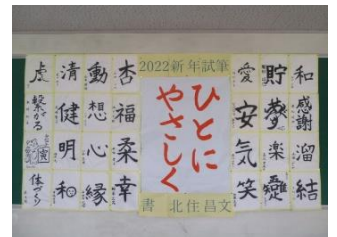 2022新年試筆
ひとに
やさしく
書 北住昌文
虎 清 動 杏
繋がる 健 想 福
明 心 柔
体づくり 和 縁 幸
愛 貯 和
安 夢 感謝
気 楽 溜
笑 結